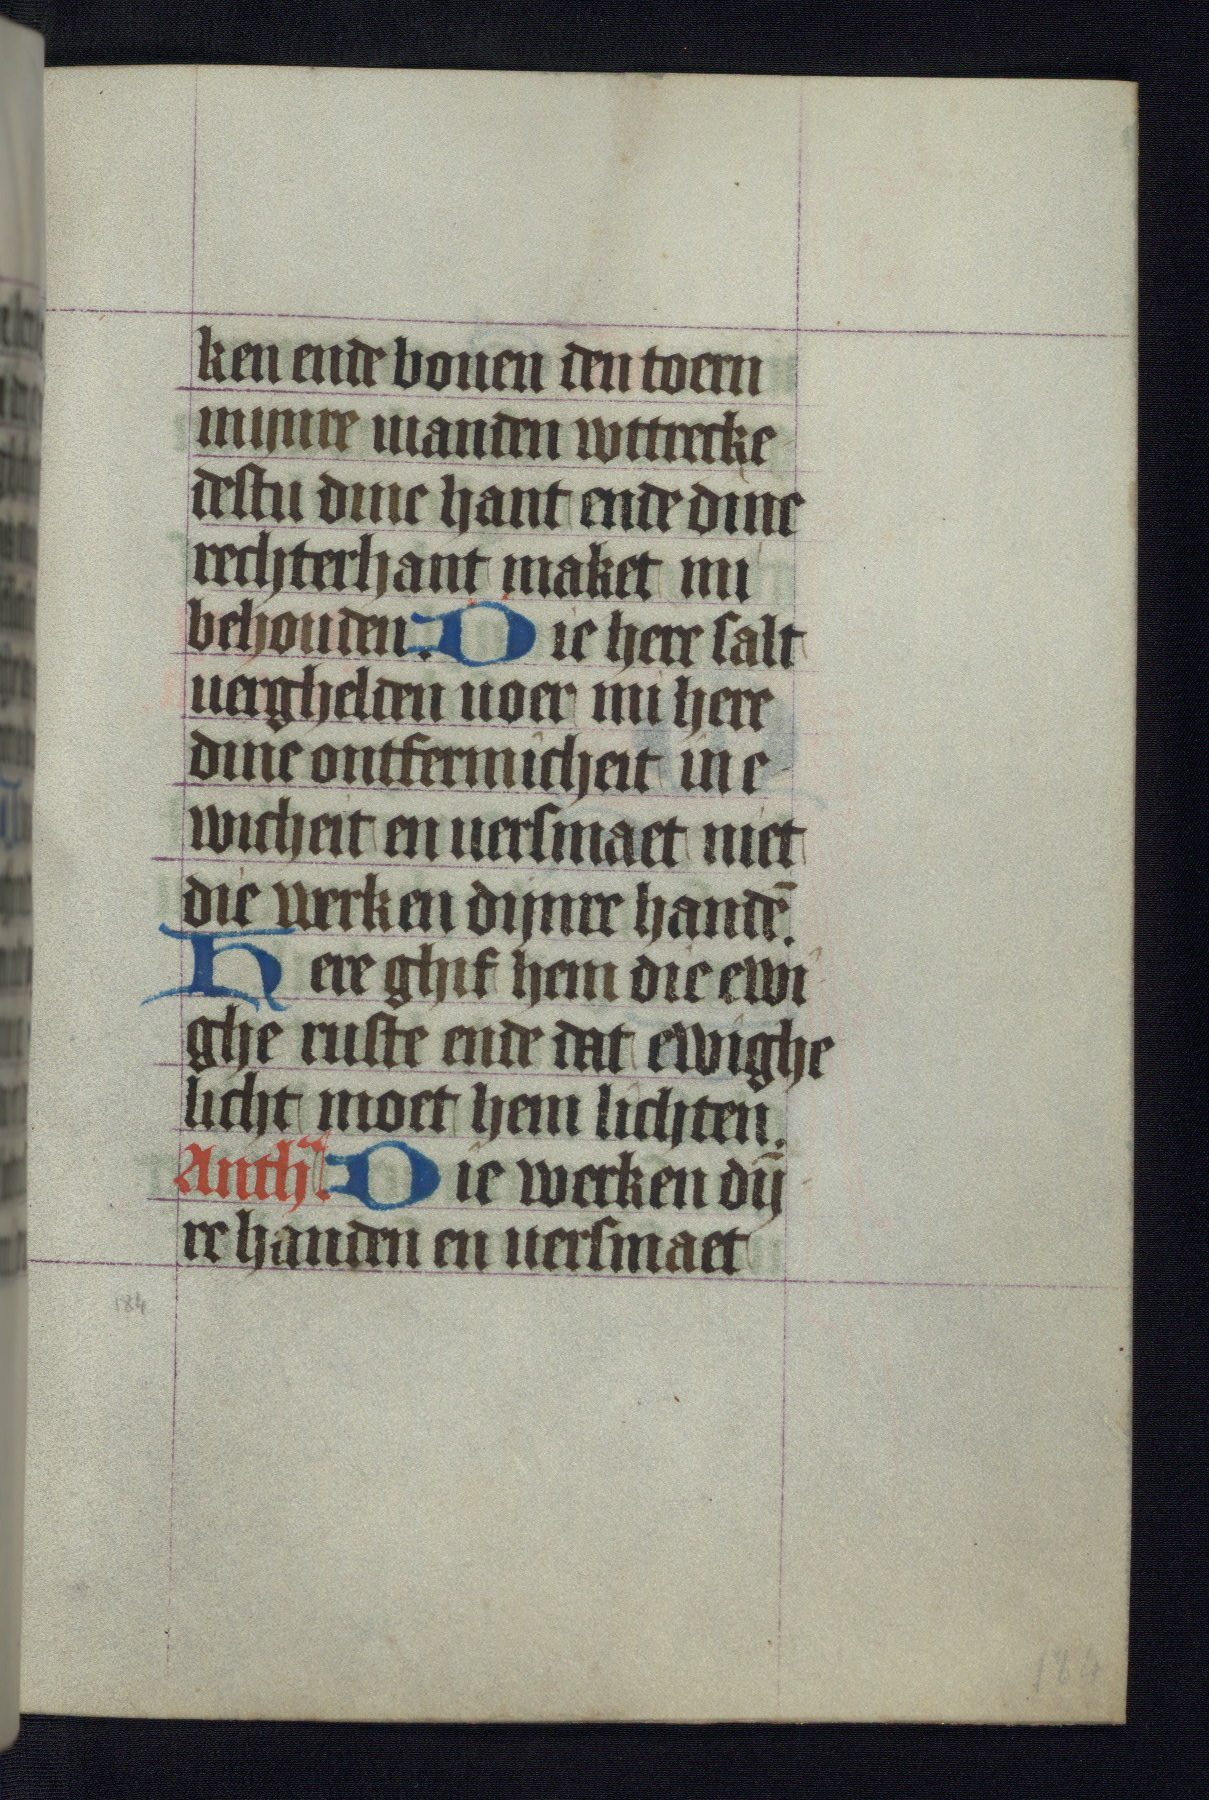 ken ende bouen den toern
mijnre uianden wttrecke
destu dine hant ende dine
rechterhant maket mi
behouden. Die here salt
uerghelden uoer mi here
dine ontfermicheit in e
wicheit en uersmaet niet
die werken dijnre handē.
Here ghif hem die ewi
ghe ruste ende dat ewighe
licht moet hem lichten.
Anthā. Die werken dij̄
re handen en uersmaet
184
184